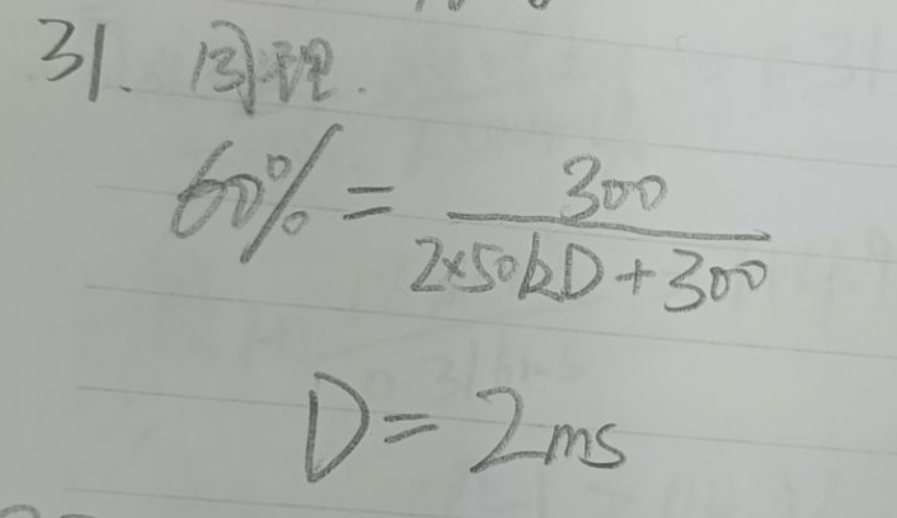 31. 同理.
60% = 300 / (2×50kD + 300)
D = 2ms